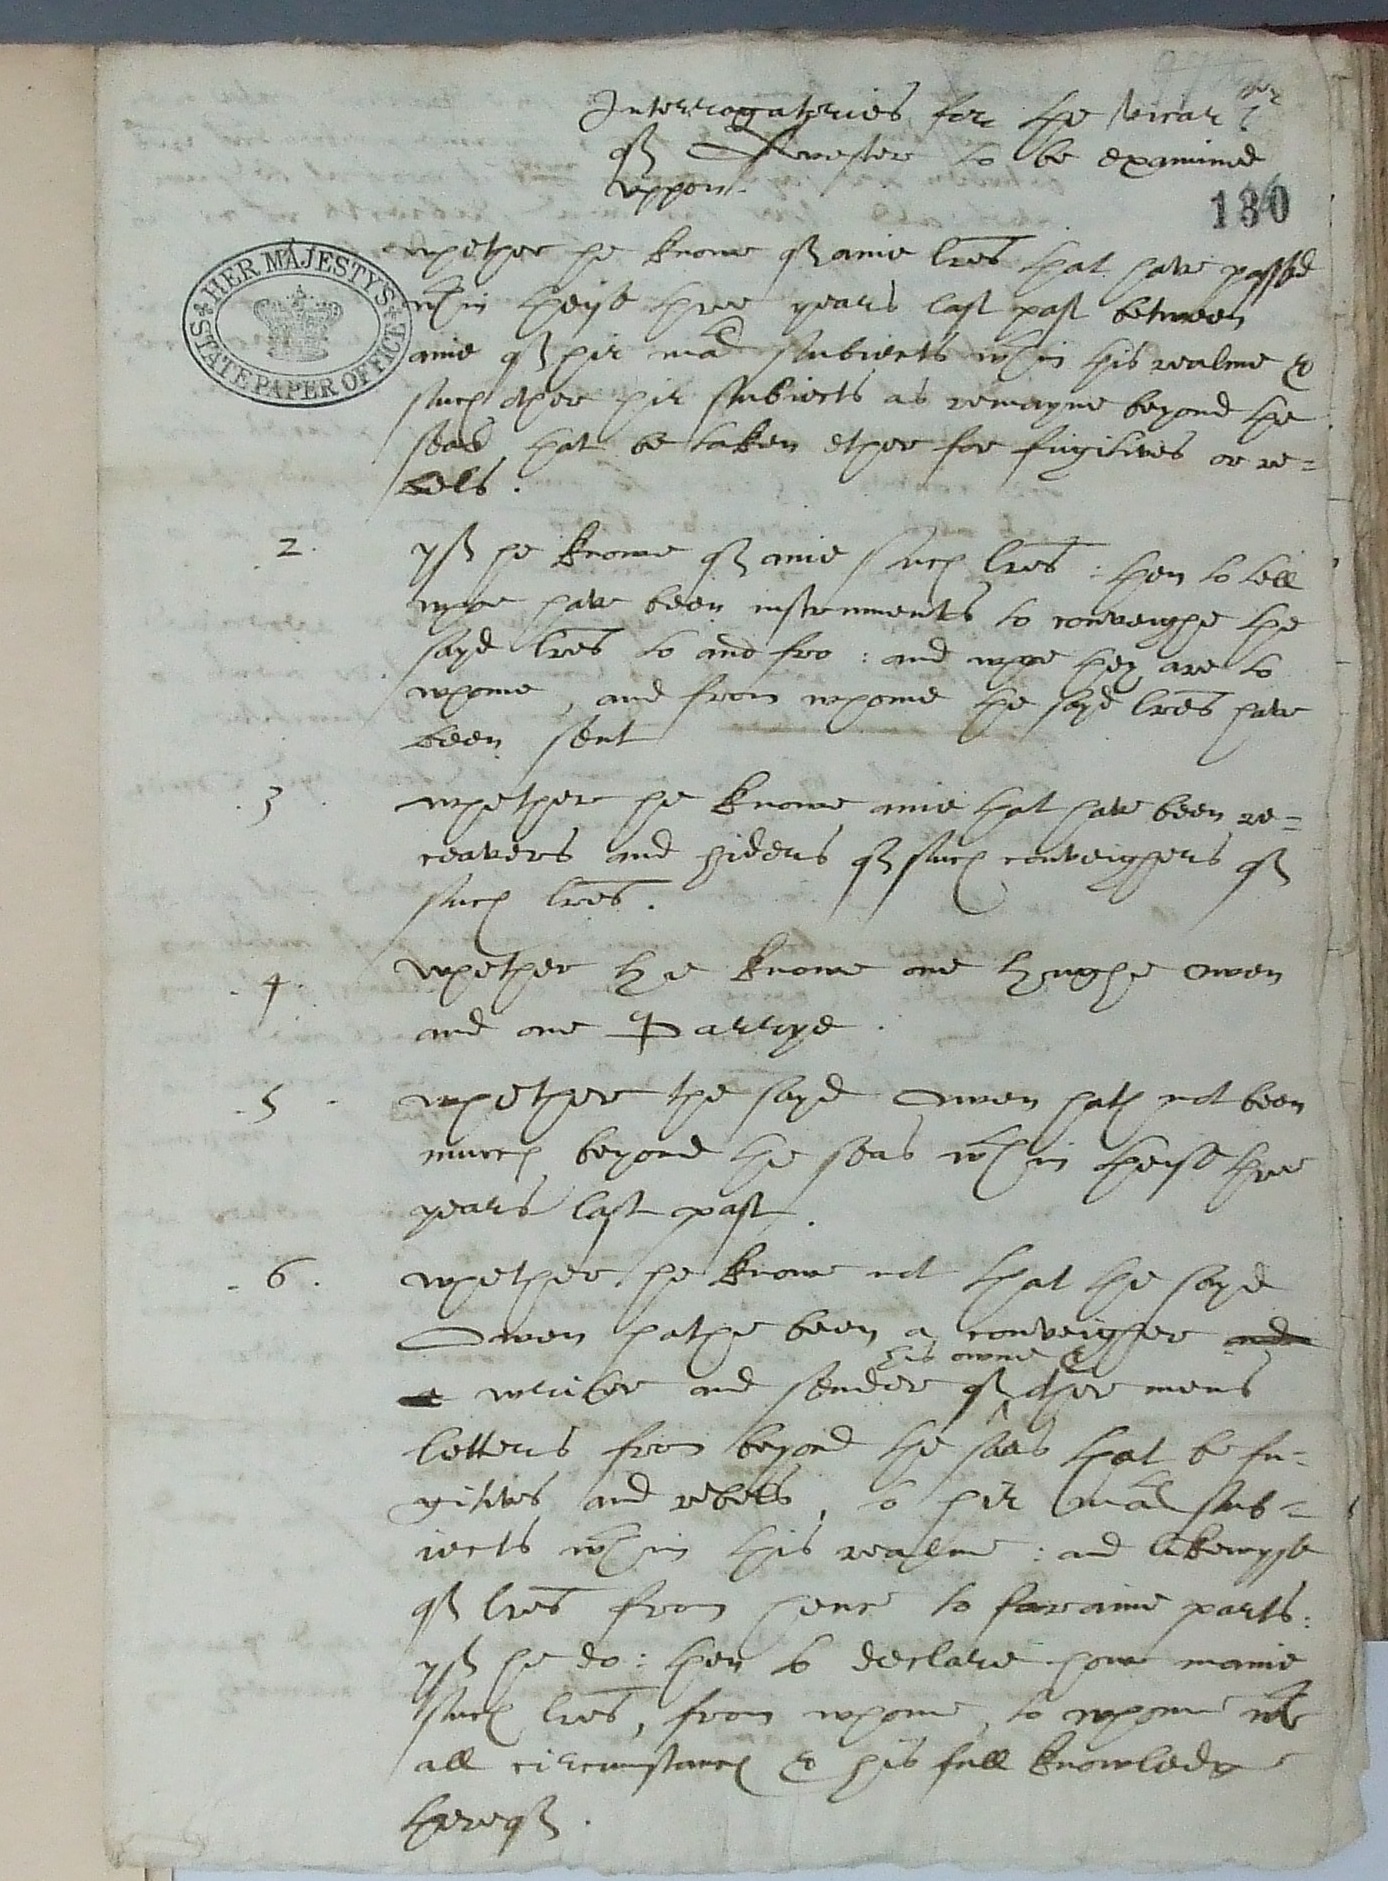 Interrogatories for the vicar
of to be examined
uppon.
130
HER MAJESTY'S
STATE PAPER OFFICE
whether he knowe of anie lres that have passed
wthin theise three years last past between
anie of hir matⁱᵉˢ subiects wthin this realme &
such other hir subiects as remayne beyond the
seas, that be taken ether for fugitives or re=
bels.
2. yf he knowe of anie such lres: then to tell
whoe have been instruments to conveighe the
sayd lres to and fro: and whoe they are to
whome, and from whome the sayd lres have
been sent
3 whether he knowe anie that have been re=
ceavers and hiders of such conveighers of
such lres.
4. whether he knowe one Hughe Owen
and one Parrye.
5 whether the sayd Owen hath not been
much beyond the seas wthin theise three
years last past.
6. whether he knowe not that the sayd
Owen hathe been a conveigher and
a writer and sender of his owne & other mens
letters from beyond the seas that be fu=
gitives and rebells, to hir matⁱᵉˢ sub=
iects wthin this realme: and likewyse
of lres from hence to foraine parts:
yf he do: then to declare how manie
such lres, from whome, to whome wth
all circumstances & his full knowledge
hereof.